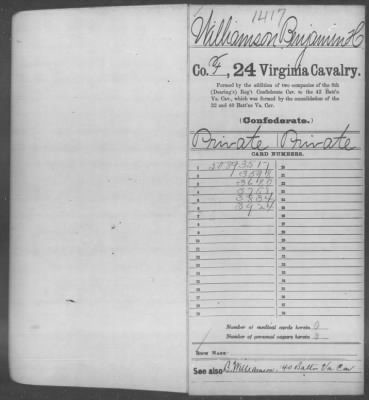 1417
Williamson, Benjamin H
Co. F, 24 Virginia Cavalry.
Formed by the addition of two companies of the 8th
(Dearing's) Reg't Confederate Cav. to the 42 Batt'n
Va. Cav., which was formed by the consolidation of the
32 and 40 Batt'ns Va. Cav.
(Confederate.)
Private Private
CARD NUMBERS.
1 50893517 20
2 21
3 3640 22
4 23
5 24
6 3924 25
7 26
8 27
9 28
10 29
11 30
12 31
13 32
14 33
15 34
16 35
17 36
18 37
19 38
Number of medical cards herein 0
Number of personal papers herein
BOOK MARK:
See also B. Williamson, 40 Battn Va Cav